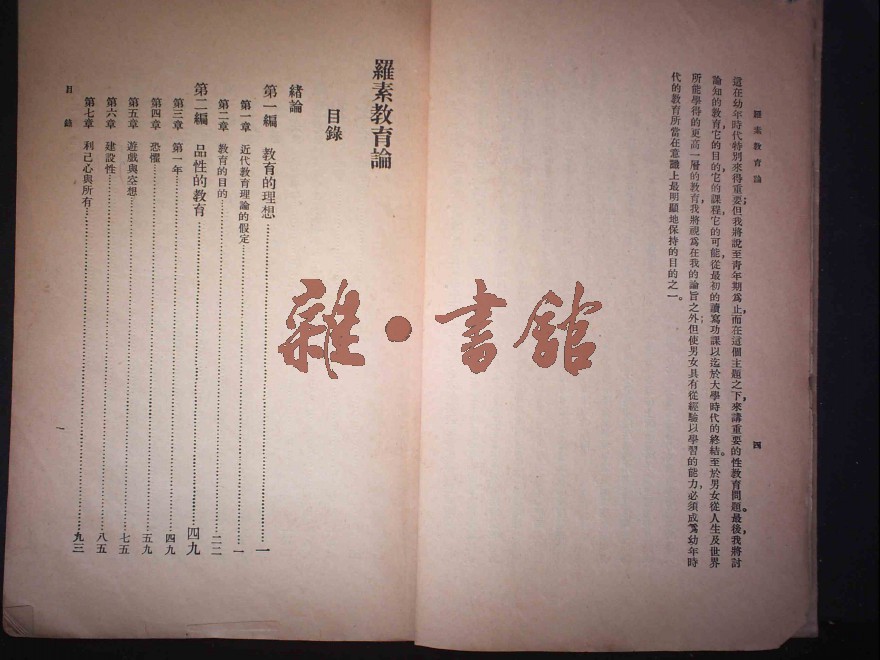 羅素教育論
四
這在幼年時代特別來得重要；但我將說至青年期爲止，而在這個主題之下，來講重要的性教育問題。最後，我將討
論知的教育，它的目的，它的課程，它的可能，從最初的讀寫功課以迄於大學時代的終結。至於男女從人生及世界
所能學得的更高一層的教育，我將視爲在我的論旨之外；但使男女具有從經驗以學習的能力，必須成爲幼年時
代的教育所當在意識上最明顯地保持的目的之一。
羅素教育論
目錄
緒論
第一編 教育的理想………一
第一章 近代教育理論的假定………一
第二章 教育的目的………二二
第二編 品性的教育………四九
第三章 第一年………四九
第四章 恐懼………五九
第五章 遊戲與空想………七五
第六章 建設性………八五
第七章 利己心與所有………九三
目錄
一
雜·書館